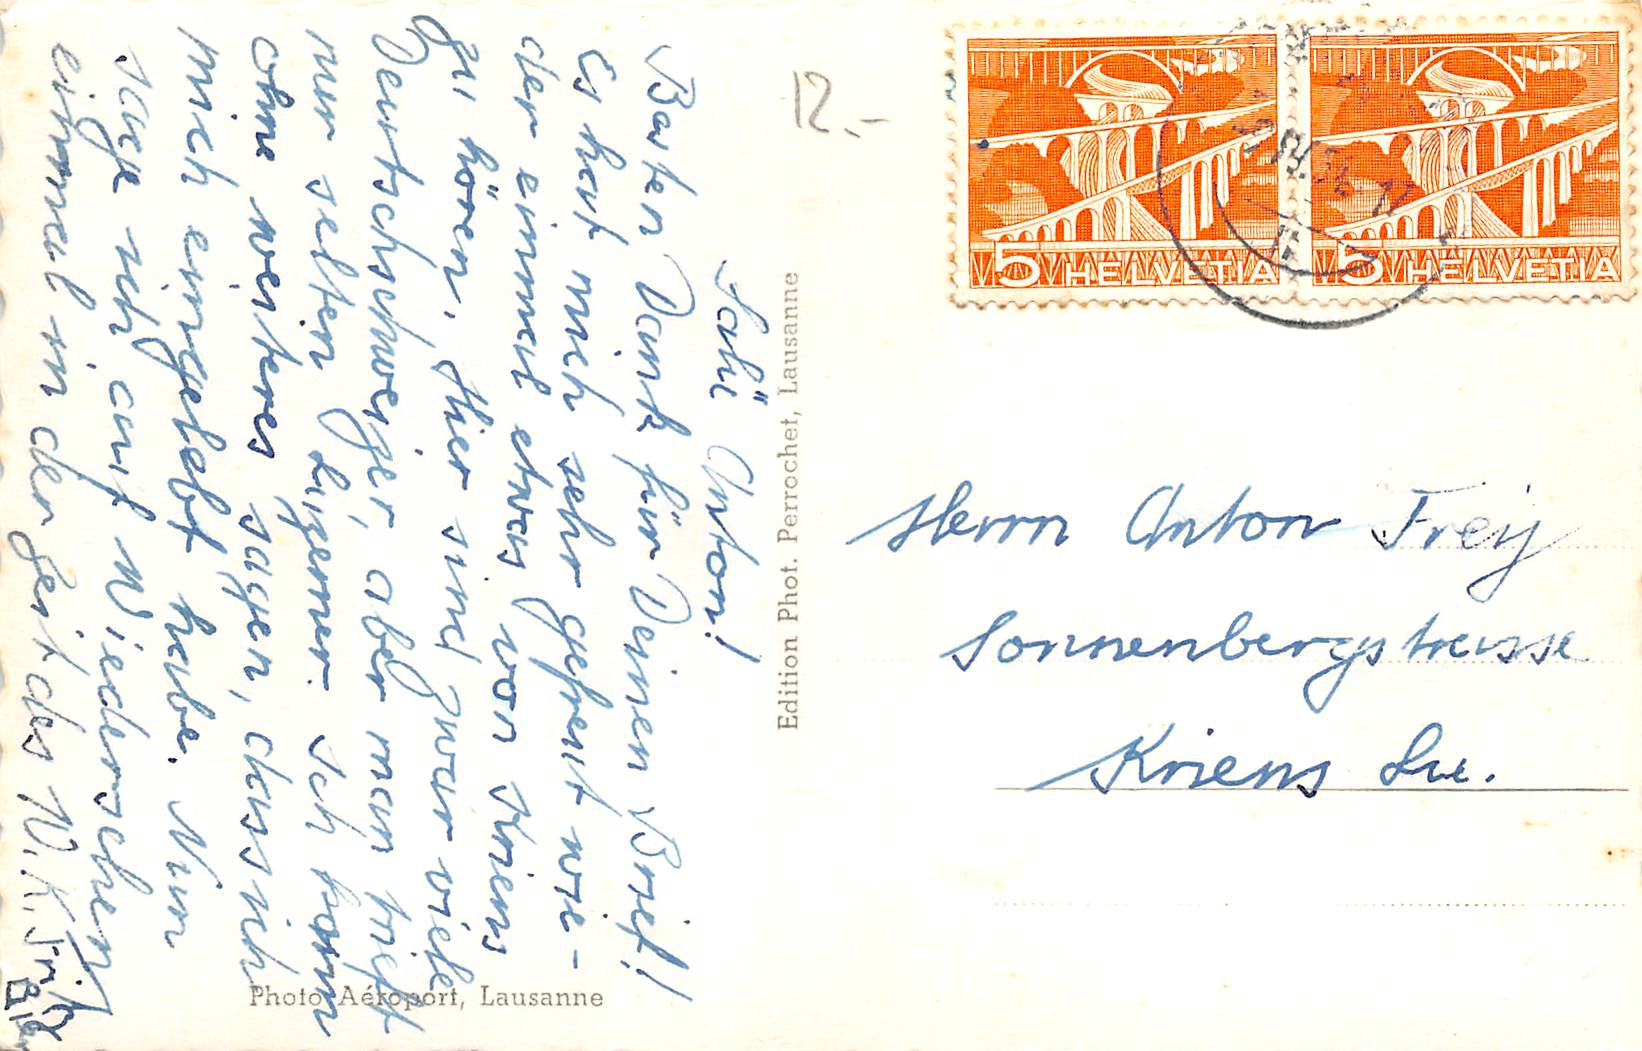 Salü Anton!
Besten Dank für Deinen Brief!
Es hat mich sehr gefreut wie-
der einmal etwas von Kriens
zu hören. Hier sind zwar viele
Deutschschweizer, aber man trifft
nur selten Luzerner. Ich kann
ohne weiteres sagen, dass ich
mich eingelebt habe. Nun
sage ich auf Wiedersehen
einmal in der Zeit des W.K. Fritz
Edition Phot. Perrochet, Lausanne
Photo Aéroport, Lausanne
12.-
5 HELVETIA
5 HELVETIA
Herrn Anton Frey
Sonnenbergstrasse
Kriens Lu.